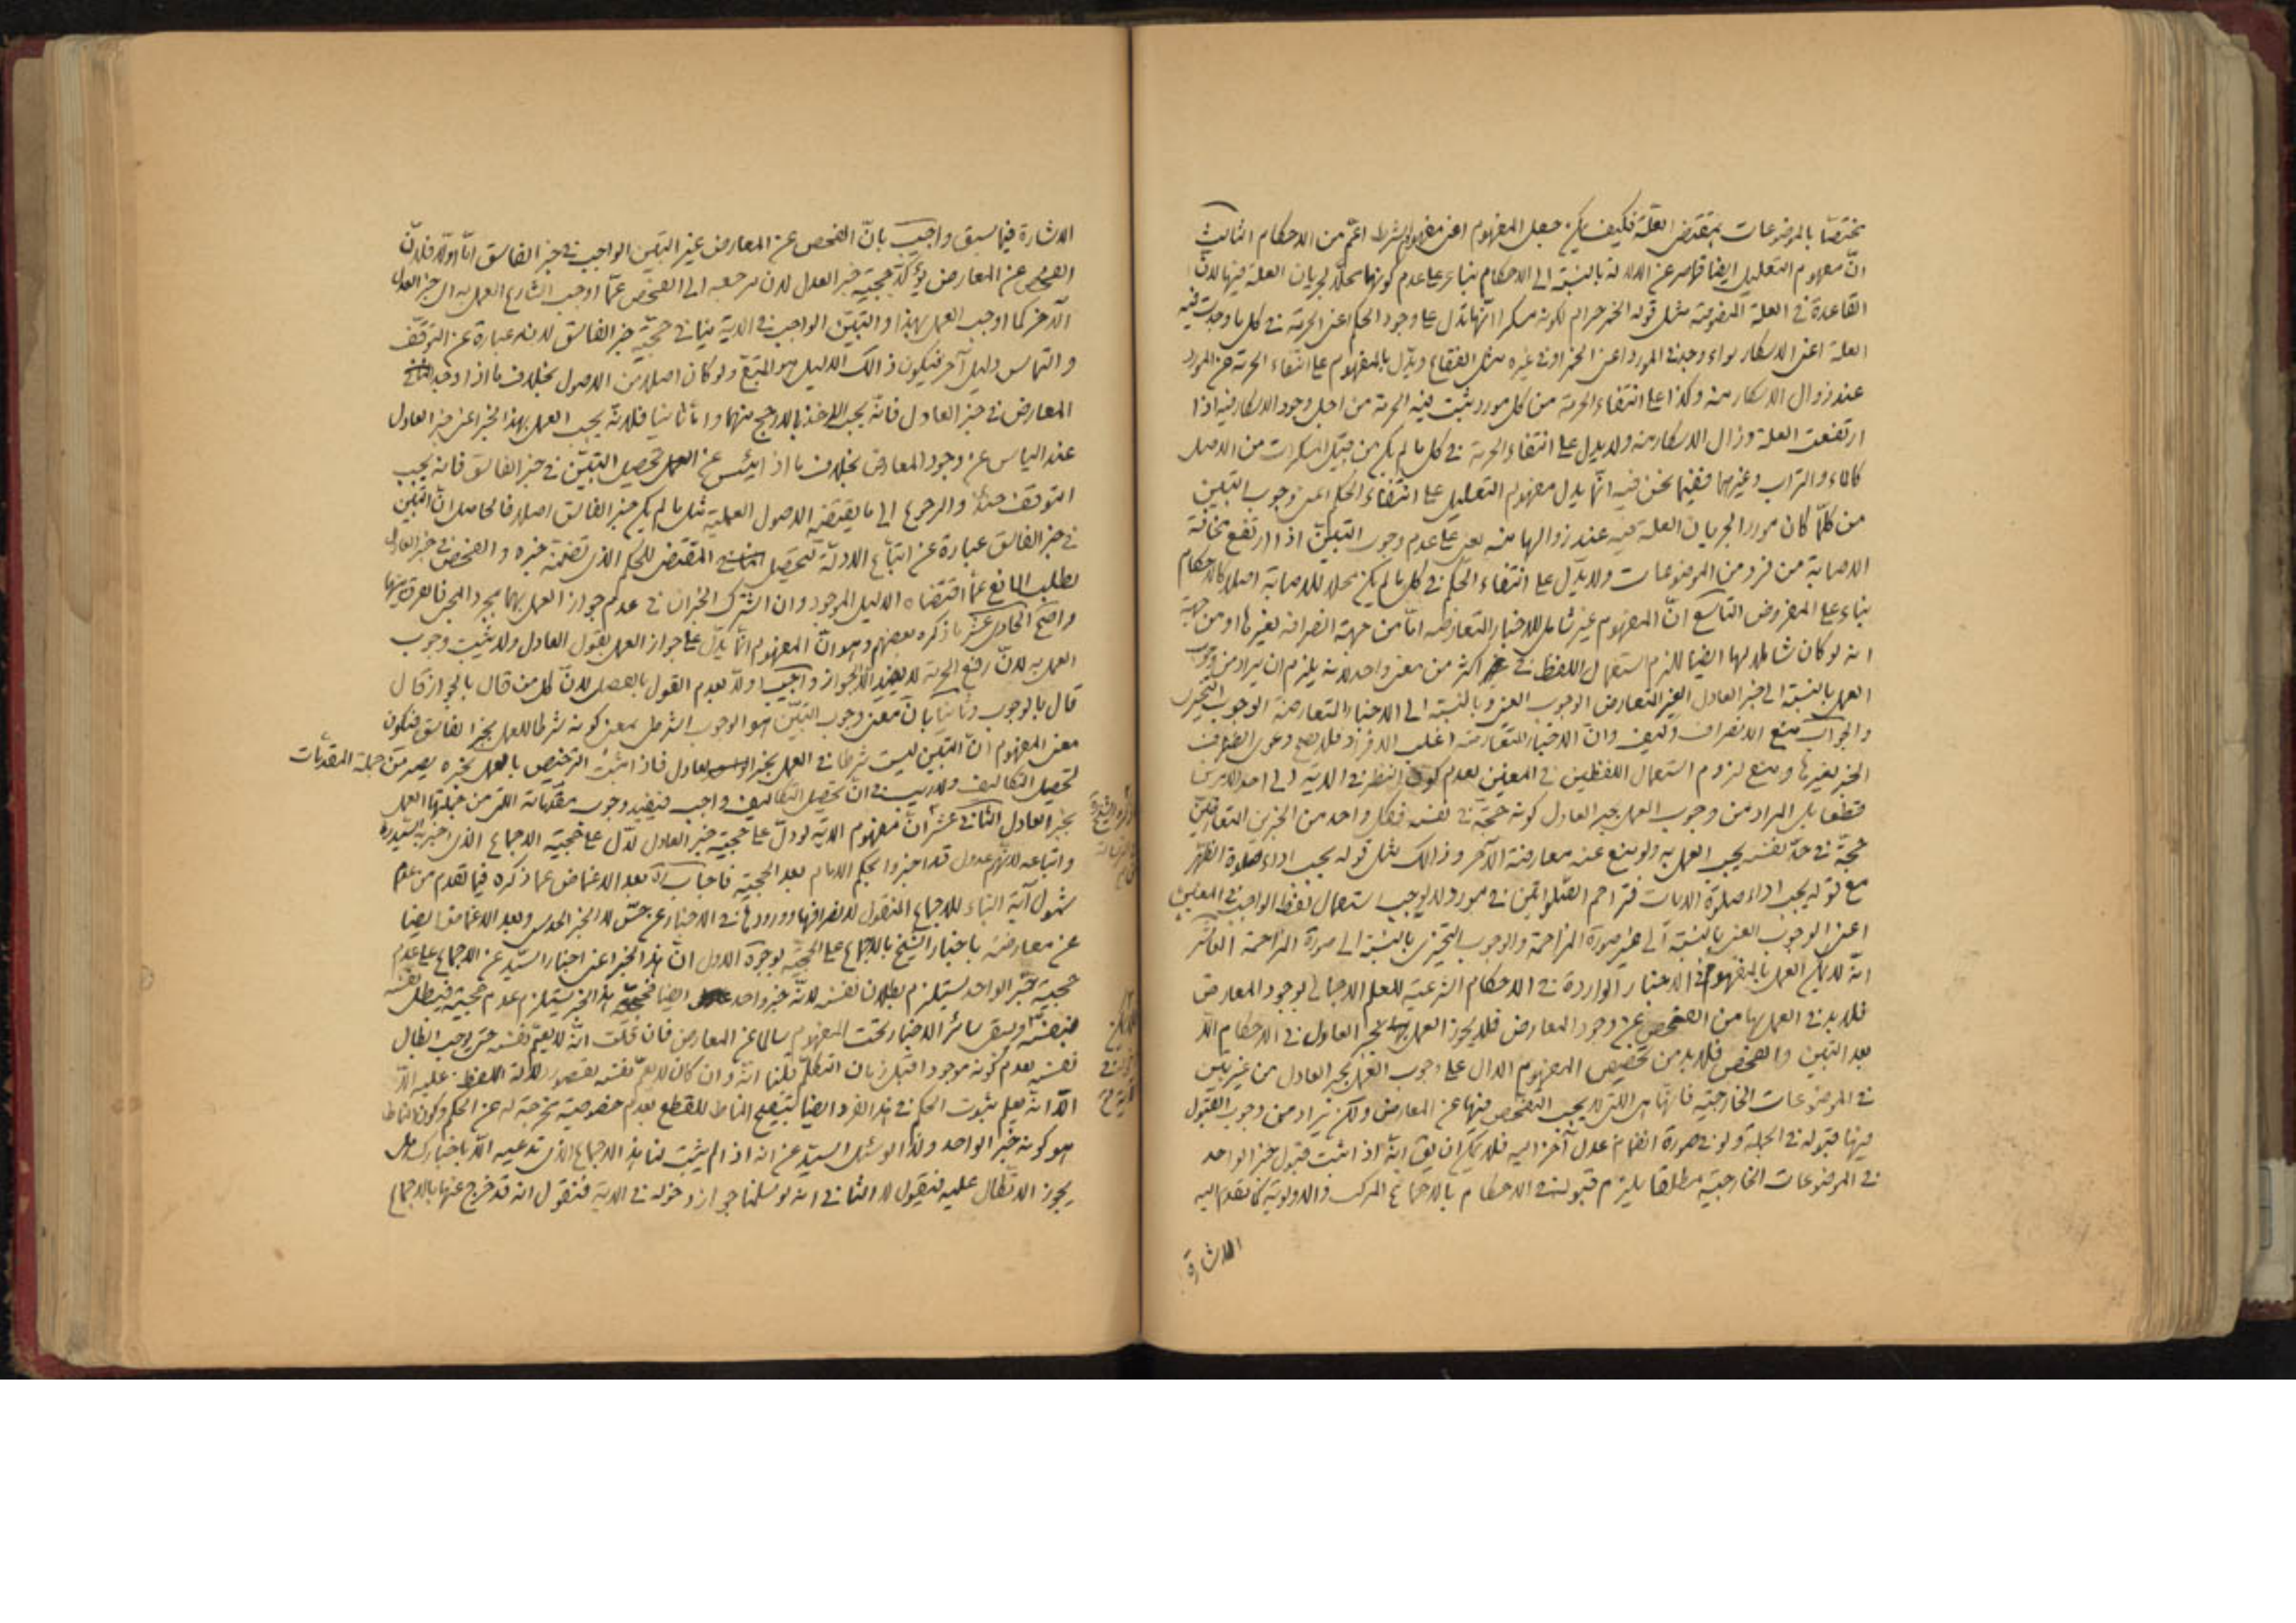 مختصّا بالموضوعات بمقتضى العلّة فكيف يمكن جعل المفهوم اعنى مفهوم الشرط اعمّ من الاحكام الثامن
انّ مفهوم التعليل ايضا قاصر عن الدلالة بالنسبة الى الاحكام بناء على عدم كونها محلّا لجريان العلة فيها لانّ
القاعدة فى العلة المنصوصة مثل قوله الخمر حرام لكونه مسكرا انّها تدل على وجود الحكم اعنى الحرمة فى كل ما وجدت فيه
العلة اعنى الاسكار سواء وجد فى المورد اعنى الخمر او فى غيره مثل الفقاع ويدلّ بالمفهوم على انتفاء الحرمة عن المورد
عند زوال الاسكار منه وكذا على انتفاء الحرمة من كل مورد ثبت فيه الحرمة من اجل وجود الاسكار فيه اذا
ارتفعت العلة وزال الاسكار منه ولا يدل على انتفاء الحرمة فى كل ما لم يكن من قبيل المسكرات من الاصل
كالماء والتراب وغيرهما ففيما نحن فيه انّما يدل مفهوم التعليل على انتفاء الحكم اعنى وجوب التبيّن
من كلّما كان موردا لجريان العلة فيه عند زوالها منه يعنى على عدم وجوب التبيّن اذا ارتفع مخافة
الاصابة من فرد من الموضوعات ولا يدّل على انتفاء الحكم فى كل ما لم يكن محلا للاصابة اصلا كالاحكام
بناء على المفروض التاسع انّ المفهوم غير شامل للاخبار المتعارضه امّا من جهة انصرافه بغيرها او من جهة
انه لو كان شاملا لها ايضا للزم استعمال اللفظ فى اكثر من معنى واحد لانه يلزم ان يراد من وجوب
العمل بالنسبة الى خبر العادل الغير المتعارض الوجوب العينى وبالنسبة الى الاخبار المتعارضة الوجوب التخييرى
والجواب منع الانصراف وكيف وانّ الاخبار المتعارضة اغلب الافراد فلا يصح دعوى انصراف
الخبر بغيرها ومنع لزوم استعمال اللفظين فى المعنين لعدم كون النظر فى الاية الى احد الامرين
قطعا بل المراد من وجوب العمل بخبر العادل كونه حجّة فى نفسه فكل واحد من الخبرين المتعارضين
حجّة فى حدّ نفسه يجب العمل به ولو منع عنه معارضة الآخر وذالك مثل قوله يجب اداء صلوة الظهر
مع قوله يجب اداء صلوة الايات فتزاحم الصّلوتين فى مورد لا يوجب استعمال لفظ الواجب فى المعنين
اعنى الوجوب العينى بالنسبة الى غير صورة المزاحمة والوجوب التخييرى بالنسبة الى صورة المزاحمة العاشر
انّه لا يمكن العمل بالمفهوم فى الاخبار الواردة فى الاحكام الشرعية للعلم الاجمالى بوجود المعارض
فلا بد فى العمل بها من الفحص عن وجود المعارض فلا يجوز العمل بخبر العادل فى الاحكام الّا
بعد التبين والفحص فلا بد من تخصيص المفهوم الدال على وجوب العمل بخبر العادل من غير تبيّن
فى الموضوعات الخارجية فانّها هى التى لا يجب التفحّص فيها عن المعارض ولكن يراد من وجوب القبول
فيها قبوله فى الجملة ولو فى صورة انضمام عدل آخر اليه فلا يمكن ان يقال انّه اذا ثبت قبول خبر الواحد
فى الموضوعات الخارجية مطلقا يلزم قبوله فى الاحكام بالاجماع المركب والاولوية كما تقدم اليه
الاشارة
الاشارة فيما سبق واجيب بانّ الفحص عن المعارض غير التبيّن الواجب فى خبر الفاسق امّا اوّلا فلانّ
الفحص عن المعارض يؤكّد حجية خبر العدل لانّ مرجعه الى الفحص عمّا اوجب الشارع العمل به اى خبر العدل
الآخر كما اوجب العمل بهذا والتبيّن الواجب فى الاية ينافى حجّية خبر الفاسق لانه عبارة عن التوقّف
والتماس دليل آخر فيكون ذالك الدليل هو المتبع ولو كان اصلا من الاصول بخلاف ما اذا وجد
المعارض فى خبر العادل فانّه يجب الاخذ بالارجح منهما وامّا ثانيا فلانّه يجب العمل بهذا الخبر اعنى خبر العادل
عند الياس عن وجود المعارض بخلاف ما اذا يئس عن تحصيل التبيّن فى خبر الفاسق فانه يجب
التوقف حينئذ والرجوع الى ما يقتضيه الاصول العملية مثل ما لم يكن خبر الفاسق اصلا فالحاصل انّ التبيّن
فى خبر الفاسق عبارة عن اتباع الادلّة لتحصيل المقتضى للحكم الذى تضمّنه خبره والفحص فى خبر العادل
لطلب المانع عمّا اقتضاه الدليل الموجود وان اشترك الخبران فى عدم جواز العمل بهما بمجرد المجىء فالفرق بينهما
واضح الحادى عشر ما ذكره بعضهم وهو انّ المفهوم انّما يدّل على جواز العمل بقول العادل ولا يثبت وجوب
العمل به لانّ رفع الحرمة لا يفيد الّا الجواز واجيب اولا بعدم القول بالفصل لانّ كل من قال بالجواز قال
قال بالوجوب وثانيا بانّ معنى وجوب التبيّن هو الوجوب الشرطى بمعنى كونه شرطا للعمل بخبر الفاسق فيكون
معنى المفهوم انّ التبيّن ليست شرطا فى العمل بخبر العادل فاذا ثبت الترخيص بالعمل بخبره يصير من جملة المقدّمات
لتحصيل التكاليف ولا ريب فى انّ تحصيل التكاليف واجب فيفيد وجوب مقدّماته التى من جملتها العمل
بخبر العادل الثانى عشر انّ مفهوم الاية لو دلّ على حجية خبر العادل لدّل على حجية الاجماع الذى اخبر به السيّد ره
واتباعه لانّهم عدول قد اخبروا بحكم الامام بعدم الحجية فاجاب بعد الاغماض عما ذكره فيما تقدم من عدم
شمول آية النباء للاجماع المنقول لانصرافها وورودها فى الاخبار عن حسّ لا الخبر الحدسى وبعد الاغماض ايضا
عن معارضته باخبار الشيخ بالاجماع على الحجّية بوجوه الاول انّ هذا الخبر اعنى اخبار السيّد عن الاجماع على عدم
حجية خبر الواحد يستلزم بطلان نفسه لانّه خبر واحد ايضا فحجيّة هذا الخبر يستلزم عدم حجيته فيبطل نفسه
بنفسه ويبقى سائر الاخبار تحت المفهوم سالما عن المعارض فان قلت انّه لا يعمّ نفسه حتى يوجب ابطال
نفسه لعدم كونه موجودا قبل زمان التكلّم قلنا انّه وان كان لا يعمّ نفسه لقصور دلالة اللفظ عليه الّا
انّه يعلم بثبوت الحكم فى هذا الفرد ايضا لتنقيح المناط للقطع بعدم خصوصية مخرجة له عن الحكم وكون المناط
هو كونه خبر الواحد ولذا لو سئل السيّد عن انه اذا لم يثبت لنا هذا الاجماع الذى تدعيه الّا باخبارك هل
يجوز الاتكال عليه فيقول لا الثانى انه لو سلمنا جواز دخوله فى الاية فنقول انه قد خرج عنها بالاجماع